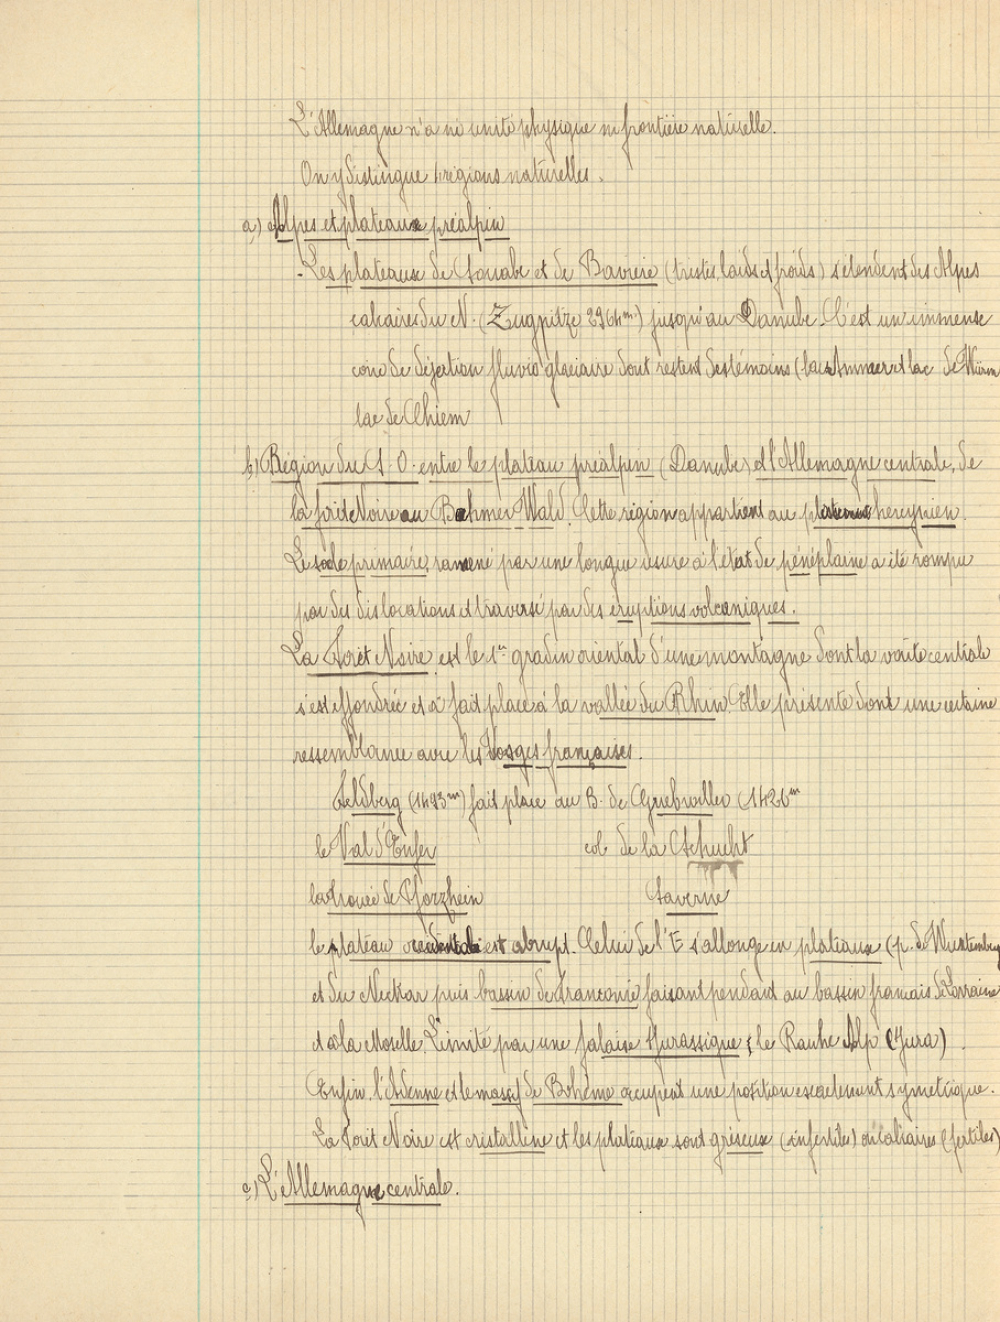 L'Allemagne n'a ni unité physique ni frontière naturelle.
On y distingue régions naturelles.
a) Alpes et plateaux préalpin
- Les plateaux de Souabe et de Bavière (tristes, laids et froids) s'étendent des Alpes
calcaires du N. (Zugpitze 2964m) jusqu'au Danube. C'est un immense
cône de déjection fluvio glaciaire dont restent des témoins (lacs Ammer et lac de Würm
lac de Chiem
b) Région du S. O. entre le plateau préalpin (Danube) et l'Allemagne centrale, de
la forêt Noire au Bohmer Wald. Cette région appartient au plateau hercynien.
Le socle primaire, ramené par une longue usure à l'état de pénéplaine a été rompu
par des dislocations et traversé par des éruptions volcaniques.
La Forêt Noire est le 1er gradin oriental d'une montagne dont la voûte centrale
s'est effondrée et a fait place à la vallée du Rhin. Elle présente dont une certaine
ressemblance avec les Vosges françaises.
Feldberg (1493m) fait place au B. de Guebwiller (1426m
le Val d'Enfer col de la Schucht
la trouée de Pforzhein Saverne
le plateau occidental est abrupt. Celui de l'E s'allonge en plateaux (p. de Wurtemberg
et du Neckar puis bassin de franconie faisant pendant au bassin français de Lorraine
et à la Moselle. Limité par une falaise Jurassique : le Rauhe Alp (Jura)
Enfin, l'Ardenne et le massif de Bohême occupent une position exactement symetrique.
La Forêt Noire est cristalline et les plateaux sont gréseux (infertiles) ou calcaires (fertiles)
c) L'Allemagne centrale.